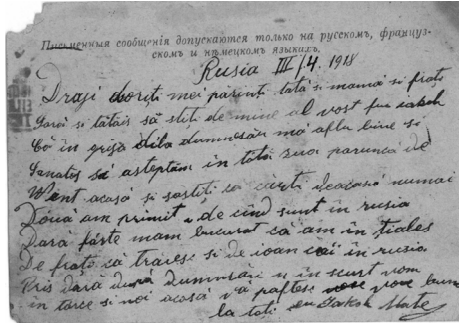 Письменныя сообщенія допускаются только на русскомъ, француз-
скомъ и нѣмецкомъ языкахъ.
Rusia III/4. 1918
Draji doriți mei parinți tată si mamă si frați
sorăi si tătăis să stiți de mine al vost fiu
Că în grija dumnezău mă aflu bine si
Sanatos să asteptăm în tătă zua parunca de
Went acasă si să stiți că cărti deacasă numai
Două am primit de cînd sunt în rusia
Dara fárte mam bucurat că am în
De frați că traiesc si de ioan căi în rusia
Pris dară dumnezău în scurt vom
în tarce si noi acasă vă paftesc
la toți